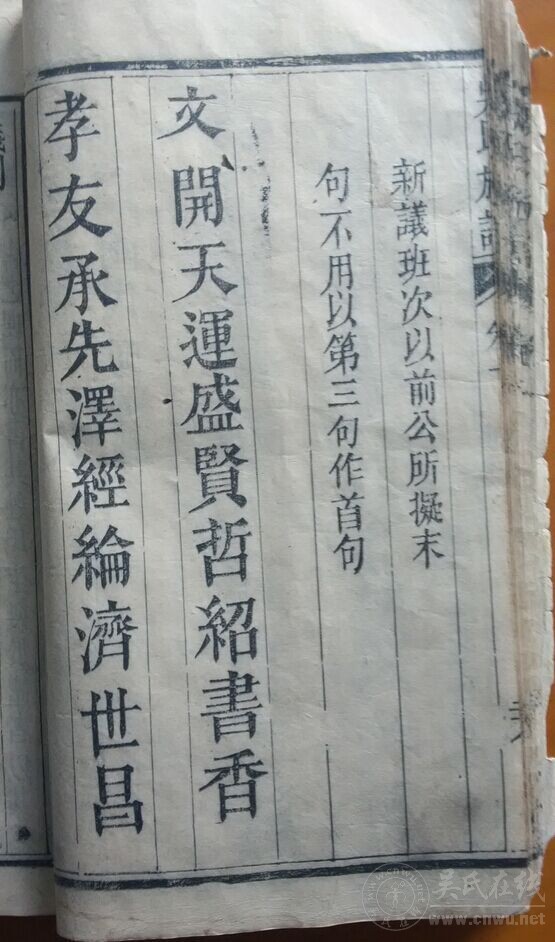 吳氏族譜 卷
新議班次以前公所擬末
句不用以第三句作首句
文開天運盛賢哲紹書香
孝友承先澤經綸濟世昌
吴氏在线
www.cnwu.net